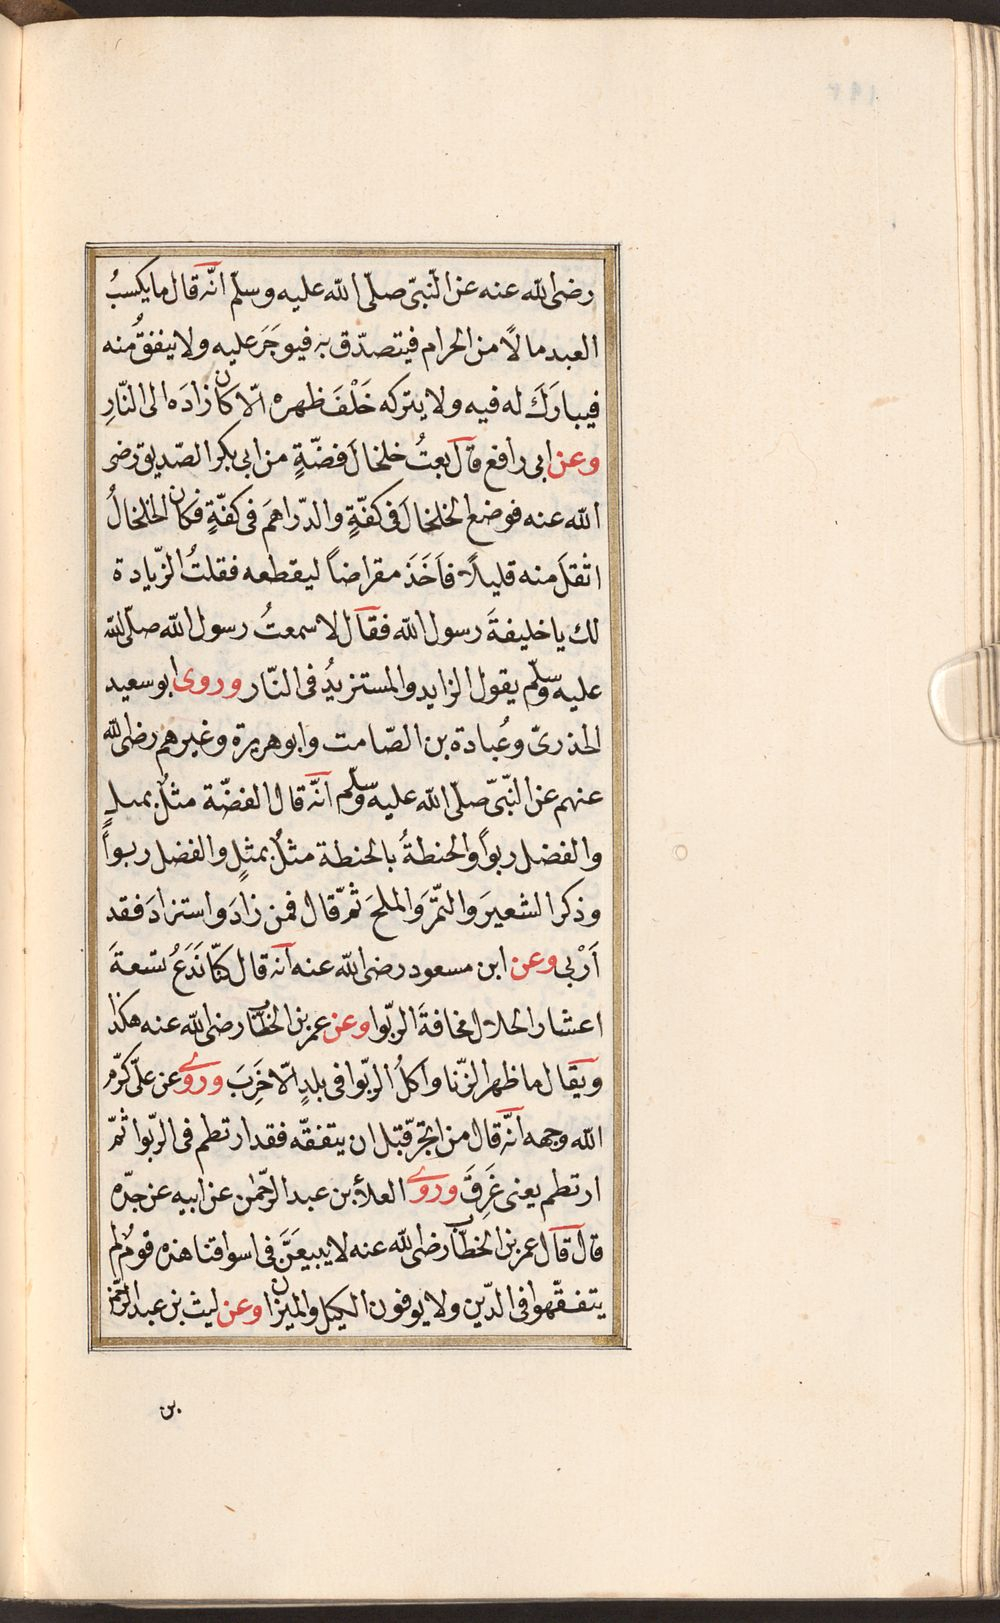 رضى الله عنه عن النّبىّ صلّى الله عليه وسلّم انّه قال ما يكسبُ
العبد مالًا من الحرام فيتصدّق به فيوجَرَ عليه ولا ينفقُ منه
فيبارَكَ له فيه ولا يتركه خَلْفَ ظهره الّا كان زادَه الى النّارِ
وعن ابى رافع قال بعتُ خلخالَ فضّةٍ من ابى بكر الصّديق رضى
الله عنه فوضع الخلخالَ فى كفّةٍ والدّراهمَ فى كفّةٍ فكان الخلخالُ
اثقلَ منه قليلًا فاَخَذَ مقراضاً ليقطعه فقلتُ الزّيادة
لك يا خليفةَ رسول الله فقال لا سمعتُ رسول الله صلّى الله
عليه وسلّم يقول الزايد والمستزيدُ فى النّار وروى ابو سعيد
الخذرىّ وعُبادة بن الصّامت وابو هريرة وغيرهم رضى الله
عنهم عن النّبىّ صلّى الله عليه وسلّم انّه قال الفضّة مثلٌ بمثل
والفضل ربواً والحنطةُ بالحنطة مثلٌ بمثلٍ والفضل ربواً
وذكر الشعيرَ والتّمرَ والملحَ ثمّ قال فمن زادَ واستزادَ فقد
اَرْبى وعن ابن مسعود رضى الله عنه انه قال كنّا نَدَعُ تسعةَ
اعشار الحلال مخافةَ الرّبوا وعن عمر بن الخطّاب رضى الله عنه هكذا
ويقال ما ظهر الزّنا واكلُ الرّبوا فى بلدٍ الّا خَرِبَ وروى عن علىّ كرّم
الله وجهه انّه قال من اتّجر قبل ان يتفقّه فقد ارتطم فى الرّبوا ثمّ
ارتطم يعنى غَرِقَ وروى العلأ بن عبد الرّحمن عن ابيه عن جدّه
قال قال عمر بن الخطّاب رضى الله عنه لا يبيعَنَّ فى اسواقنا هذه قومٌ لم
يتفقّهوا فى الدّين ولا يوفون الكيل والميزان وعن ليث بن عبد الرّحمن
بن